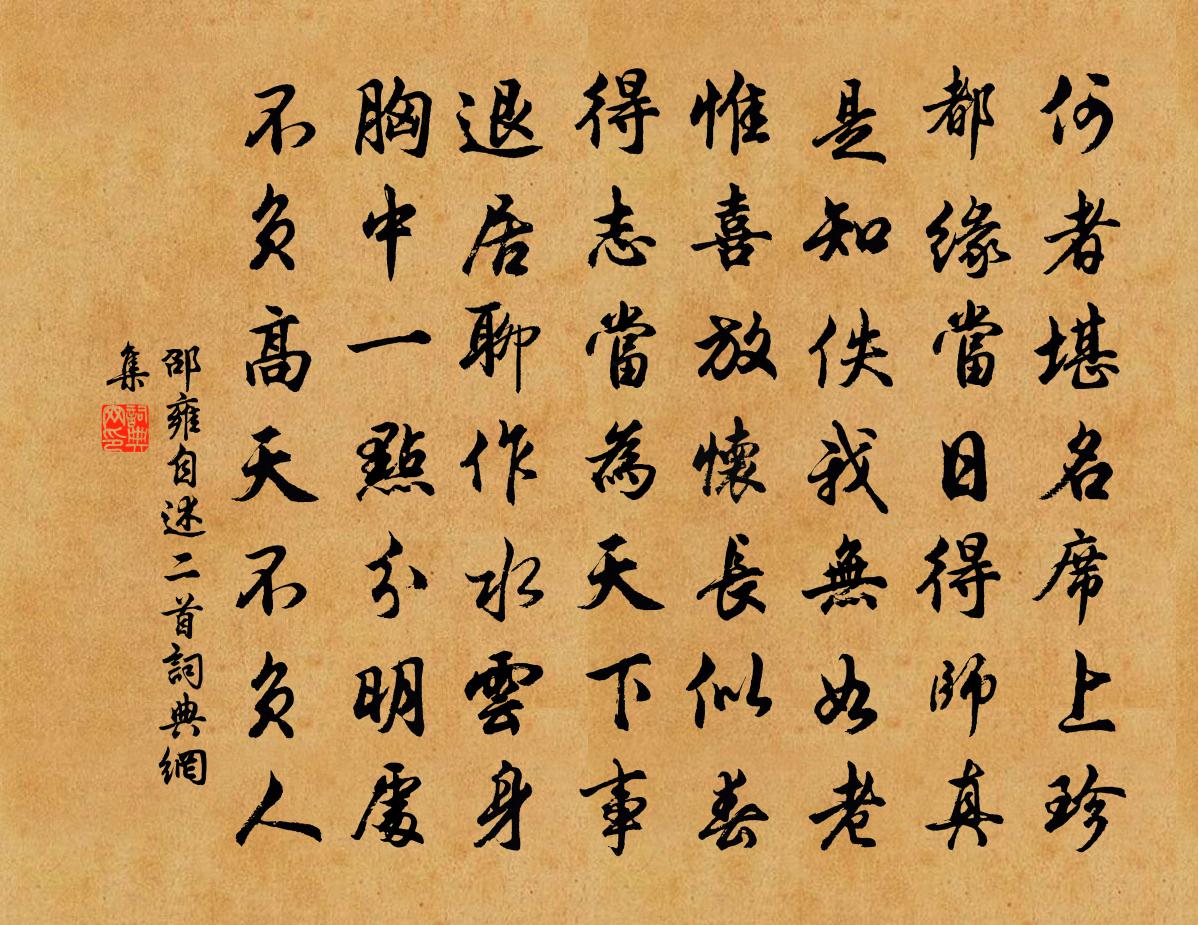 何者堪名席上珍
都緣當日得師真
是知佚我無如老
惟喜放懷長似春
得志當為天下事
退居聊作水雲身
胸中一點分明處
不負高天不負人
邵雍自述二首詞典網
集
詞典網印